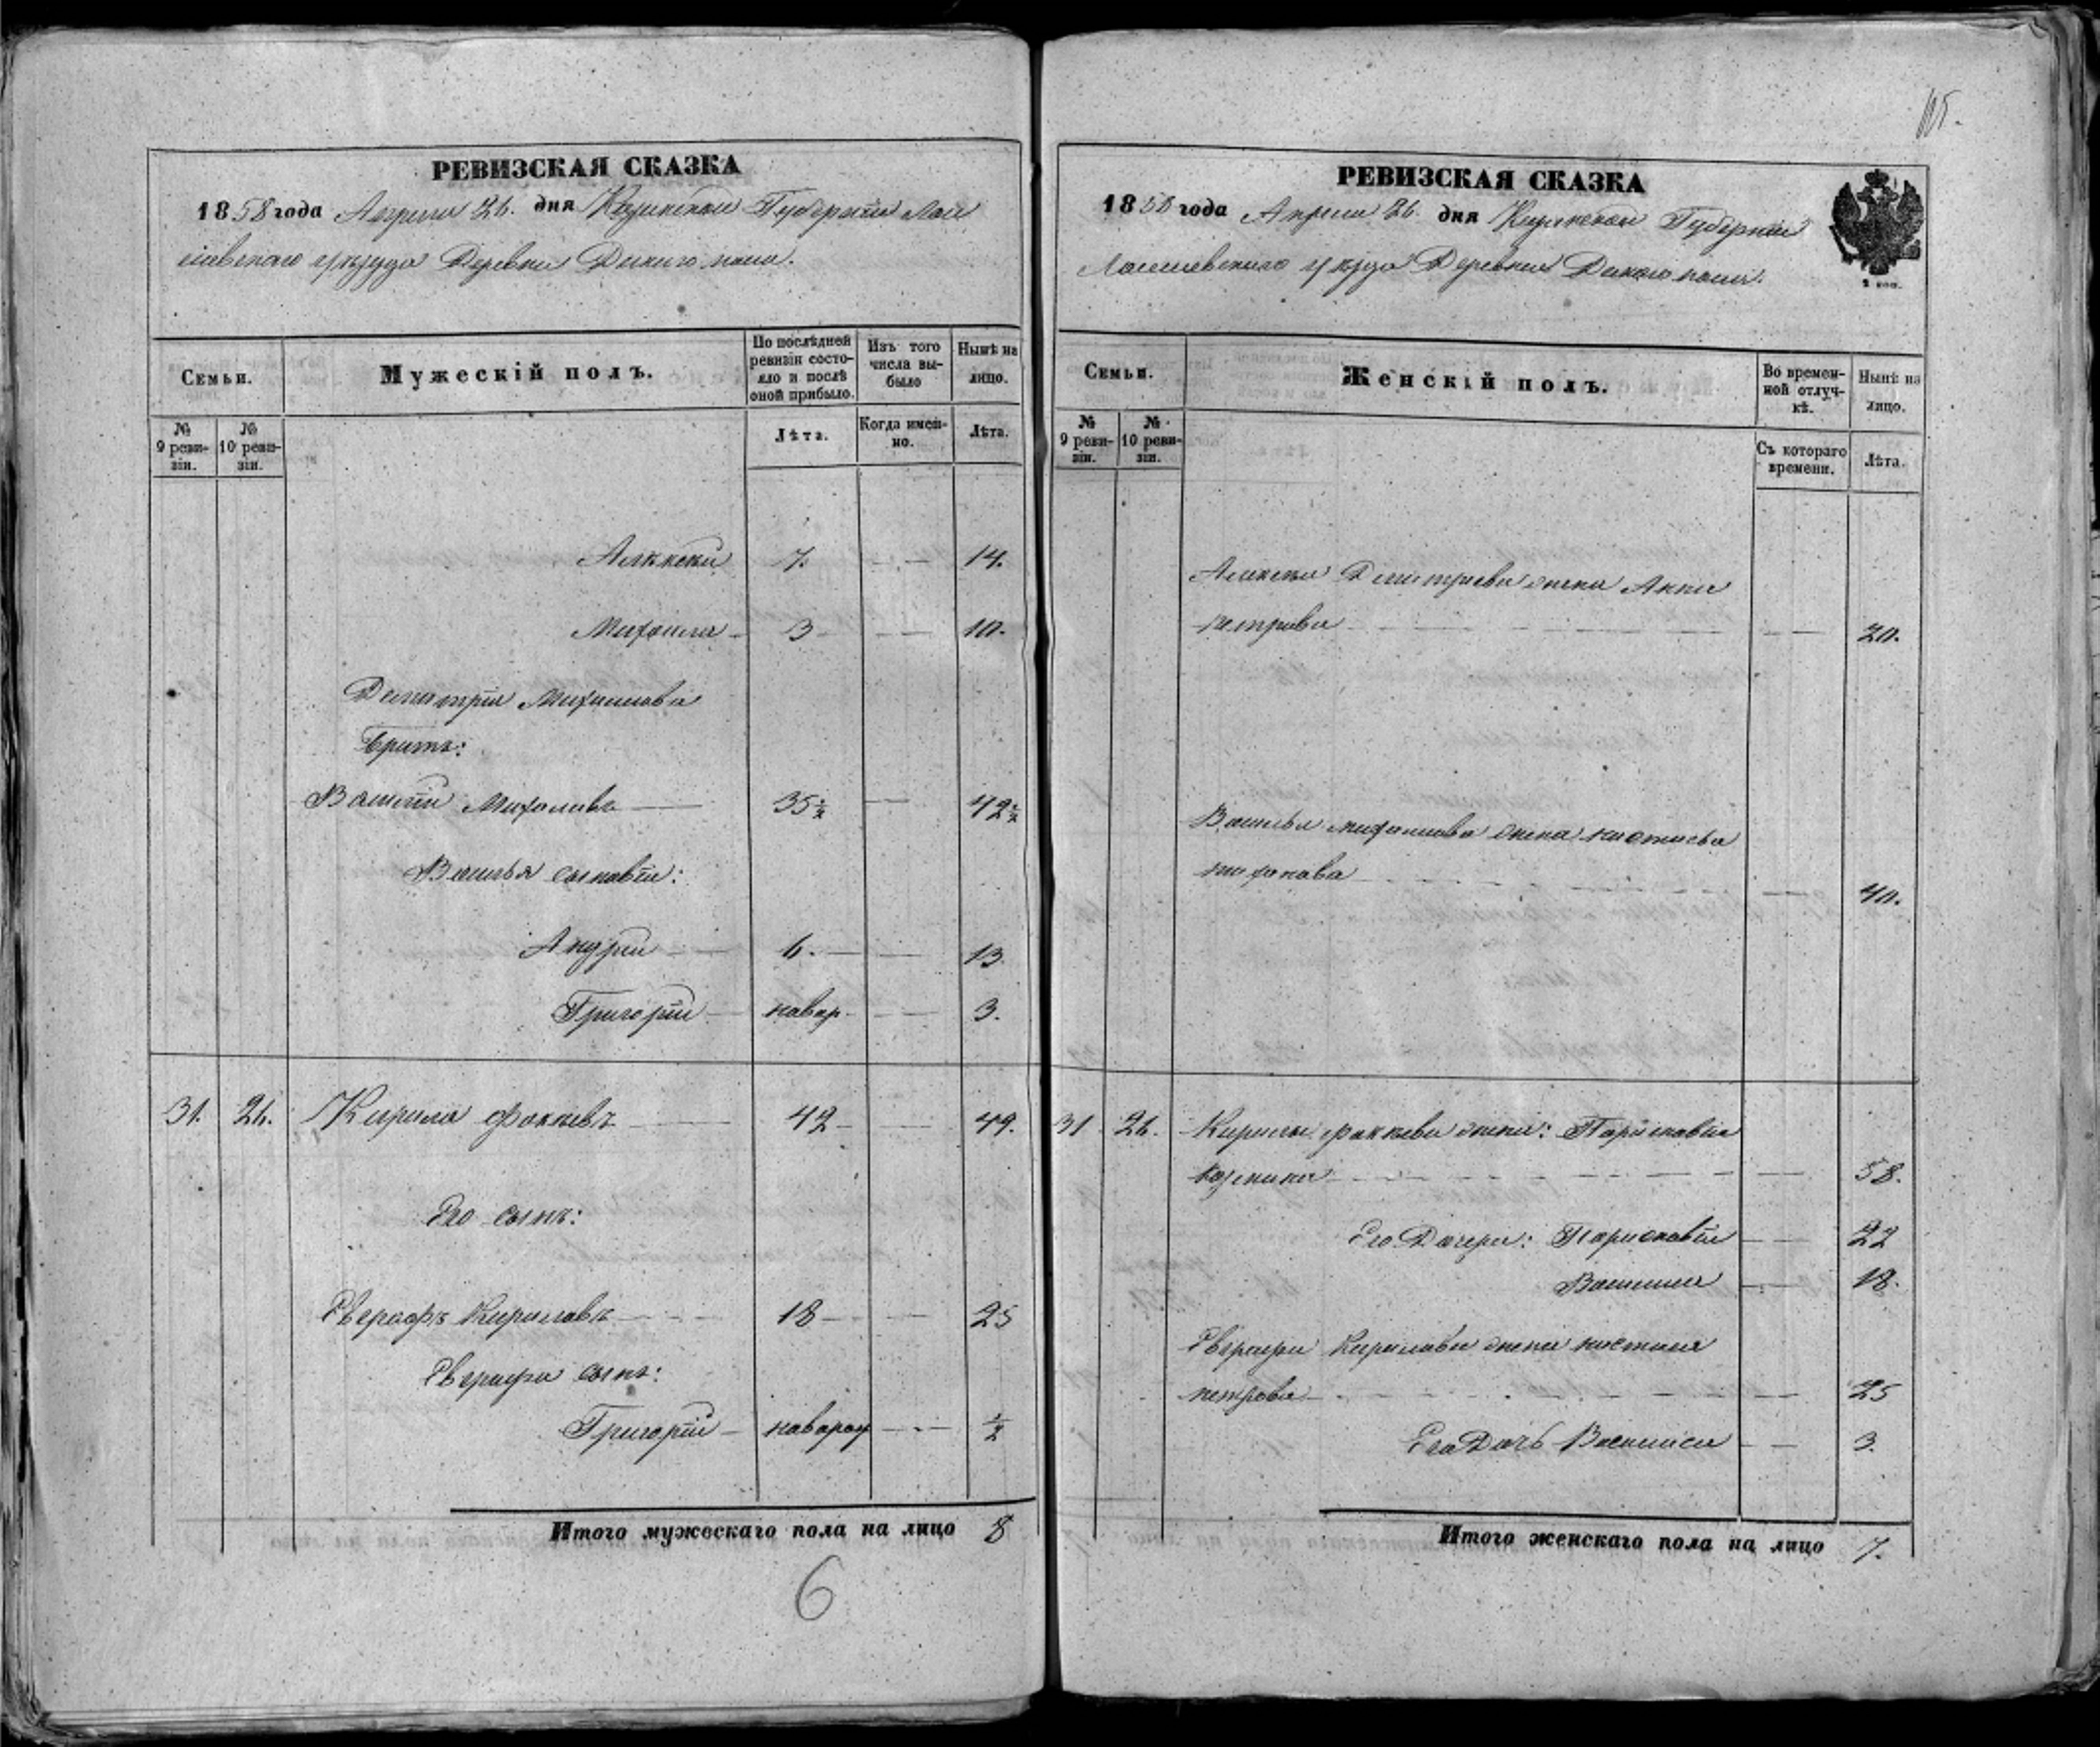 105.
РЕВИЗСКАЯ СКАЗКА
1858 года Апреля 26. дня Казанской Губернии Лаи
шевскаго уѣзда Деревни Дикаго поля.
Семьи.
Мужескій полъ.
По послѣдней ревизіи состояло и послѣ оной прибыло.
Изъ того числа выбыло
Нынѣ на лицо.
№ 9 ревизіи.
№ 10 ревизіи.
Лѣта.
Когда именно.
Лѣта.
Алексѣй 7. 14.
Михаила 3 10.
Димитрія Михайлова
братъ:
Василій Михайлавъ 35½ 42½
Василья сыновьи:
Андрей 6. 13
Григорій навор. 3.
31. 26. Кирила Фокѣевъ 42 49.
Его сынъ:
Евграфъ Кирилавъ 18 25
Евграфа сынъ:
Григорій наворож ½
Итого мужескаго пола на лицо 8
6
РЕВИЗСКАЯ СКАЗКА
1858 года Апреля 26. дня Казанской Губернии
Лаишевскаго уѣзда Деревни Дикаго поля.
2 коп.
Семьи.
Женскій полъ.
Во временной отлучкѣ.
Нынѣ на лицо.
№ 9 ревизіи.
№ 10 ревизіи.
Съ котораго времени.
Лѣта.
Алексѣя Димитрева жена Анна
петрова 20.
Василья михайлова жена настасья
40.
31 26. Кирилы фокѣева жена: Парасковья
козмина 58.
Его Дочери: Парасковья 22
Василиса 18.
Евграфа Кирилава жена настасья
петрова 25
Его Дочь Василиса 3.
Итого женскаго пола на лицо 7.